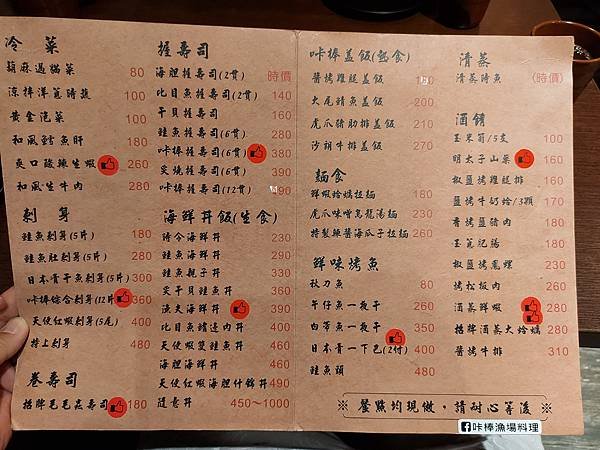 冷菜
蒜麻過貓菜 80
涼拌洋蔥時蔬 100
黃金泡菜 100
和風鱈魚肝 180
爽口酸辣生蝦 260
和風生牛肉 280
刺身
鮭魚刺身(5片) 180
鮭魚肚刺身(5片) 280
日本青干魚刺身(5片) 300
咔棒綜合刺身(12片) 360
天使紅蝦刺身(5尾) 400
特上刺身 480
卷壽司
招牌毛毛蟲壽司 180
握壽司
海膽握壽司(2貫) 時價
比目魚握壽司(2貫) 140
干貝握壽司 160
鮭魚握壽司(6貫) 280
咔棒握壽司(6貫) 380
炙燒握壽司(6貫) 390
咔棒握壽司(12貫) 490
海鮮丼飯(生食)
時令海鮮丼 230
鮭魚海鮮丼 290
鮭魚親子丼 330
炙干貝鮭魚丼 360
漁夫海鮮丼 390
比目魚鰭邊肉丼 400
天使蝦雙鮭魚丼 460
海膽海鮮丼 460
天使紅蝦海膽什錦丼 490
隨意丼 450~1000
咔棒蓋飯(熟食)
醬烤雞腿蓋飯 180
大尾鯖魚蓋飯 200
虎爪豬肋排蓋飯 210
沙朗牛排蓋飯 270
麵食
鮮蝦蛤蠣拉麵 180
虎爪味噌烏龍湯麵 230
特製辣醬海瓜子拉麵 260
鮮味烤魚
秋刀魚 80
午仔魚一夜干 260
白帶魚一夜干 350
日本青一下巴(2付) 400
鮭魚頭 480
清蒸
清蒸時魚 (時價)
酒餚
玉米筍/5支 100
明太子山藥 160
椒鹽烤雞腿排 160
鹽烤牛奶蛤/3顆 170
香烤鹽豬肉 200
玉蔥肥腸 200
椒鹽烤鳳螺 230
烤松板肉 260
酒蒸鮮蝦 280
招牌酒蒸大蛤蠣 280
醬烤牛排 310
※ 餐點均現做，請耐心等後 ※
咔棒漁場料理